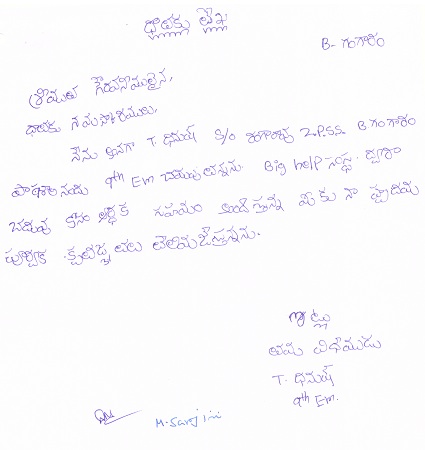 ధాతకు లేఖ
B- గంగారం
శ్రీయుత గౌరవనీయులైన,
ధాతకు నమస్కారములు,
నేను అనగా T. ధనుష్ S/o Z.P.S.S. B గంగారం
పాఠశాల నందు 9th Em చదువుతున్నను. Big help సంస్థ ద్వారా
చదువు కోసం ఆర్థిక సహాయం అందిస్తున్న మీకు నా హృదయ
పూర్వక కృతజ్ఞతలు తెలియజేస్తున్నను.
ఇట్లు
తమ విధేయుడు
T. ధనుష్
9th Em.
M. Sarojini